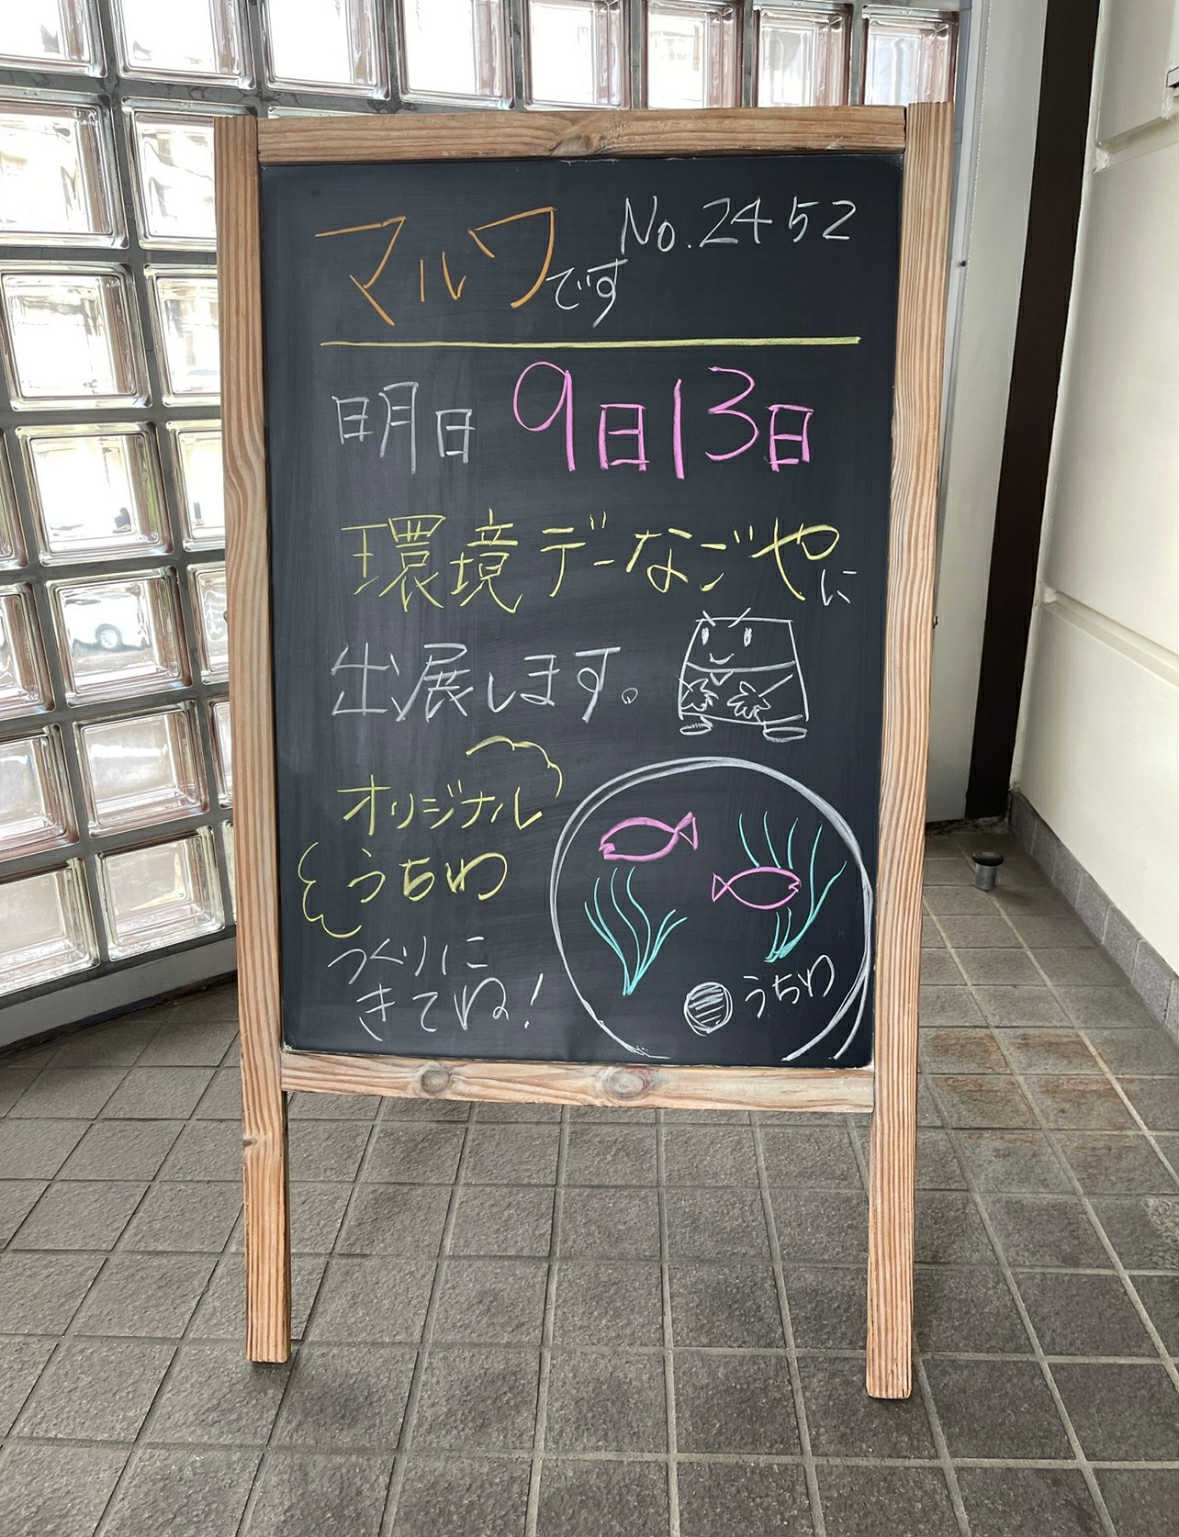 マルワです No.2452
明日 9日13日
環境デーなごやに
出展します。
オリジナル
うちわ
つくりに
きてね!
うちわ